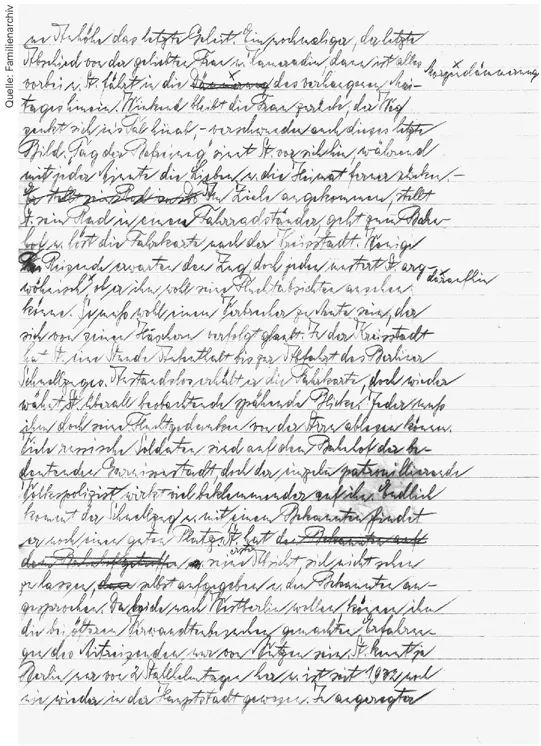 Quelle: Familienarchiv
ne Anhöhe das letzte Geleit. Ein nochmaliger, der letzte
Abschied von der geliebten Frau u. Kameradin dann ist alles
vorbei u. St. fährt in die Dämmerung des verhangenen Mai-
tages hinein. Winkend bleibt die Frau zurück, der Weg
senkt sich ins Tal hinab, - verschwunden auch dieses letzte
Bild. "Tag der Befreiung" sinnt St. vor sich hin während
mit jeder Minute die Lieben u. die Heimat ferner rücken. -
Am Ziele angekommen, stellt
St. sein Rad in einen Fahrradständer, geht zum Bahn-
hof u. löst die Fahrkarte nach der Kreisstadt. Wenige
Reisende erwarten den Zug, doch jeden mustert St. arg-
wöhnisch, ob er ihm wohl seine Fluchtabsichten ansehen
könne. So muß wohl einem Verbrecher zu Mute sein, der
sich von seinen Häschern verfolgt glaubt. In der Kreisstadt
hat St. eine Stunde Aufenthalt bis zur Abfahrt des Berliner
Schnellzuges. Anstandslos erhält er die Fahrkarte, doch wieder
wähnt St. überall beobachtende spähende Blicke. Jeder muß
ihm doch seine Fluchtgedanken von der Stirn ablesen können.
Viele russische Soldaten sind auf dem Bahnhof der be-
deutenden Garnisonstadt doch der einzeln patrouillierende
Volkspolizist wirkt viel beklemmender auf ihn. Endlich
kommt der Schnellzug u. mit einem Bekannten findet
er noch einen guten Platz. St. hat
seine Absicht sich nicht sehen
zu lassen, selbst aufgegeben u. den Bekannten an-
gesprochen. Da beide nach Westberlin wollen können ihm
die bei öfteren Verwandtenbesuchen gemachten Erfahrun-
gen des Mitreisenden nur von Nutzen sein. St. kennt ja
Berlin nur von 2 Tagen her u. ist seit 1932 noch
nie wieder in der Hauptstadt gewesen. In angeregter